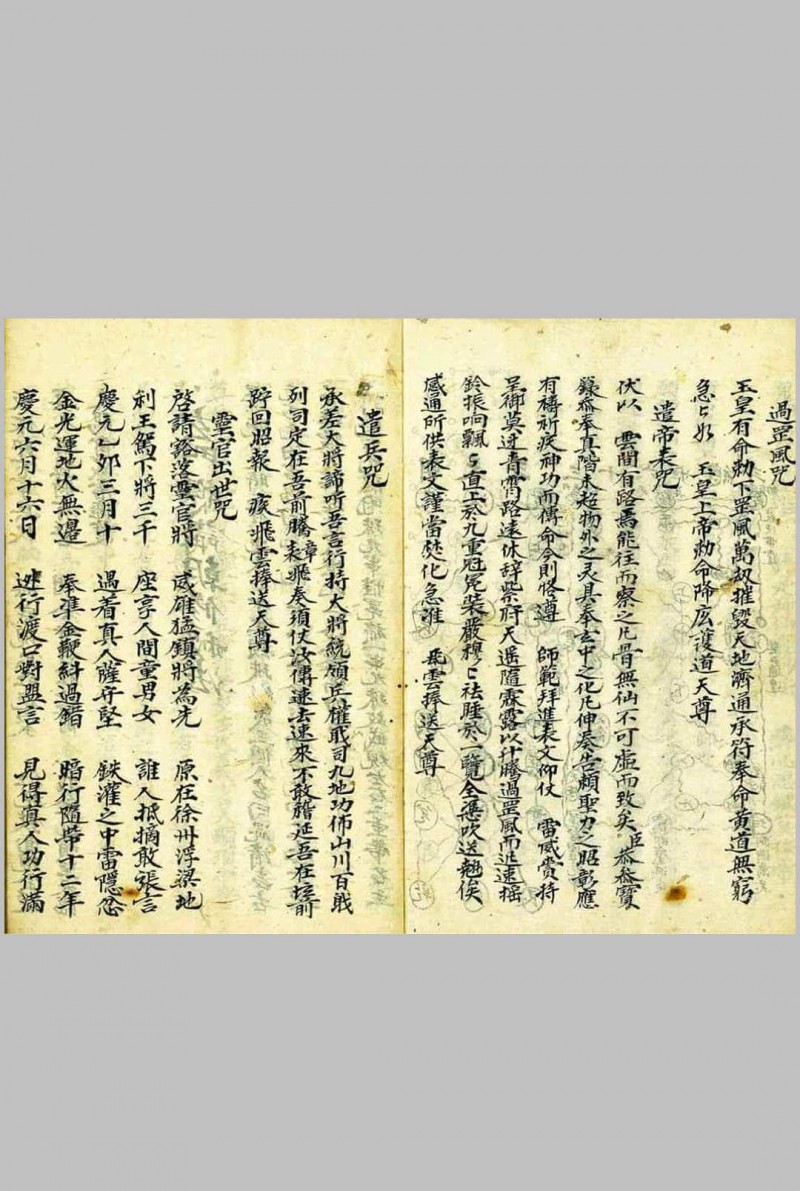 過罡風咒
玉皇有命勅下罡風萬劫摧毀天地濟通承符奉命黄道無窮
急々如 玉皇上帝勅命降広護道天尊
遣帝表咒
伏以 雲間有路焉能往而察之凡骨無仙不可虛而致矣臣恭叅寳
籙忝奉真階未超物外之灵具奉玄中之化凡伸奏告頼聖力之昭彰應
有禱祈疾神功而傳命令則恪遵 師範拜進表文仰仗 雷威賁持
呈御莫迓青霄路遠休辞紫府天遥隨霖露以什騰過罡風而迅速揺
鈴振响飄々直上於九重冠冕裝嚴穆々祛腫於一覽全憑吹送翹俟
感通所供表文謹當焚化急准 飛雲捧送天尊
遣兵咒
承差大將諦听吾言行持大將統領兵權戢司九地功佈山川百戢
列司定在吾前騰章表飛奏須仗汝傳速去速來不敢稽延吾在坛前
跱回昭報 疾飛雲捧送天尊
靈官出世咒
啓請豁落靈官將 威雄猛鎮將為先 原在徐州浮梁地
刹王駕下將三千 座享人間童男女 誰人抵擋敢張言
慶元乙夘三月十 過着真人薩守堅 鉄灌之中雷隱忿
金光運地火無邊 奉凖金鞭糾過錯 暗行隨帶十二年
慶元六月十六日 迯行渡口對盟言 見得真人功行滿